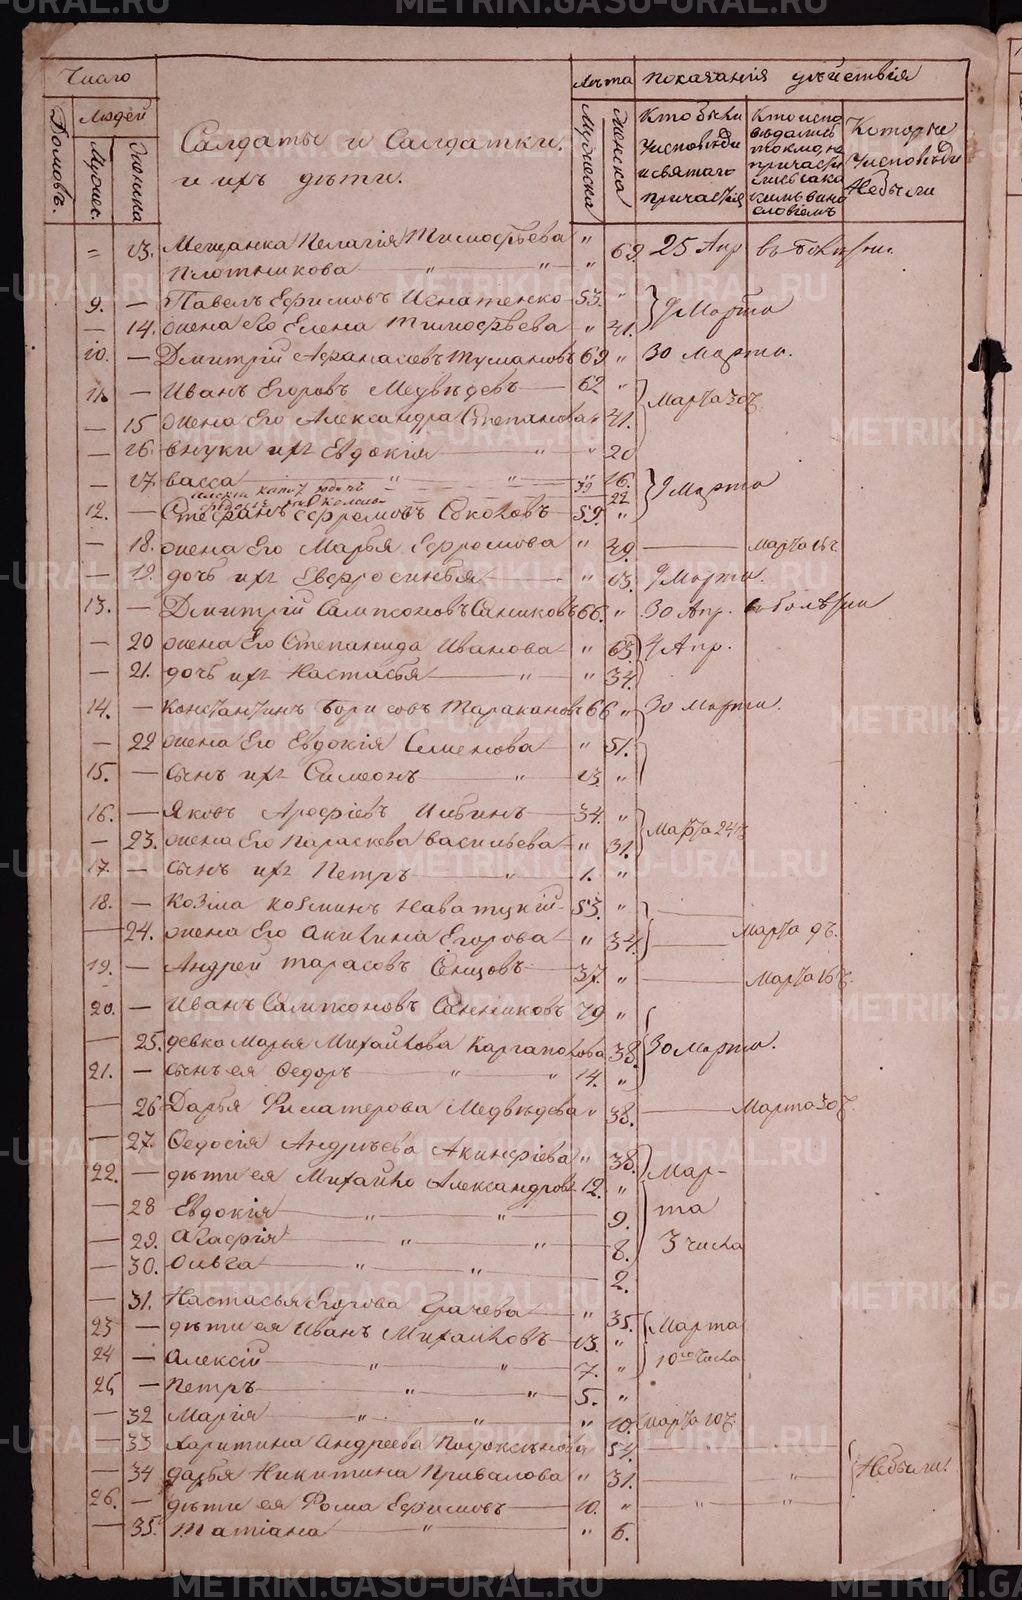 METRIKI.GASO-URAL.RU
Число
Людей
Домовъ.
Мужес.
Женска
Салдаты и Салдатки.
и ихъ дѣти.
Лѣта
Мужеска
Женска
показанія дѣйствія
Кто были
Уисповѣди
и святаго
причастія
Кто испо
вѣдались
токмо, не
причасти
лись и за ка
кимъ вино
словіемъ
Которые
Уисповѣди
Небыли
" 13. Мещанка Пелагія Тимофѣева " 69. 25 Апр
Плотникова " " "
9. — Павелъ Ефимовъ Игнатенко 53. " 9 Марта
— 14. жена его Елена Тимофѣева " 41.
10. — Дмитрій Афанасовъ Тумановъ 69 " 30 Марта.
11. — Иванъ Егоровъ Медвѣдевъ — 62 " Марта 30 ч.
— 15 жена Его Александра Степанова " 41.
— 16. внуки ихъ Евдокія — " " 20
— 17. васса " " 16.
12. — Стефанъ Ефремовъ Соколовъ — 59. " 9 Марта
— 18. жена Его Марья Ефромова " 49. — Марта 16 ч.
— 19. дочь ихъ Евфросинья — " 13. 9 Марта.
13. — Дмитрій Сампсоновъ Санниковъ 66. " 30 Апр. в болѣзни
— 20 жена Его Степанида Иванова — " 63. 4 Апр.
— 21. дочь ихъ Настасья — " " 34.
14. — Константинъ Борисовъ Таракановъ 66 " 30 Марта.
— 22 жена Его Евдокія Семенова — " 51.
15. — сынъ ихъ Симеонъ — " 13. "
16. — Яковъ Арефіевъ Ильинъ — 34. " Марта 24 ч
— 23. жена Его Параскева Васильева — " 31.
17. — сынъ ихъ Петръ — " 1. "
18. — Козма Козминъ Наватцкій — 53. " —
— 24. жена Его Акилина Егорова — " 34. — Марта 9 ч.
19. — Андрей Тарасовъ Сенцовъ — 37. " — Марта 16 ч.
20. — Иванъ Сампсоновъ Санниковъ 49 "
— 25. девка Марья Михайлова Каргаполова 38. 30 Марта.
21. — сынъ ея Федоръ — " " 14. "
— 26 Дарья Филатерова Медвѣдева " 38. — Марта 30 ч.
— 27. Федосія Андріева Акинфіева " 38. Мар-
22. — дѣти ея Михайло Александров 12. "
— 28 Евдокія — " " 9. та
— 29. Агафія — " " 8. 3 числа
— 30. Ольга — " " 2.
— 31. Настасья Егорова Грачева — " 35. Марта
23 — дѣти ея Иванъ Михайловъ — 13. "
24 — Алексій — " " 7. " 10го числа
25 — Петръ — " " 5. "
— 32 Марія — " " " 10. Марта 10 ч.
— 33 Харитина Андреева 54.
— 34 дарья Никитина Привалова " 31. — " Небыли.
26. — дѣти ея Фома Ефимовъ — 10. " — " "
— 35. Татіана — " " 6.